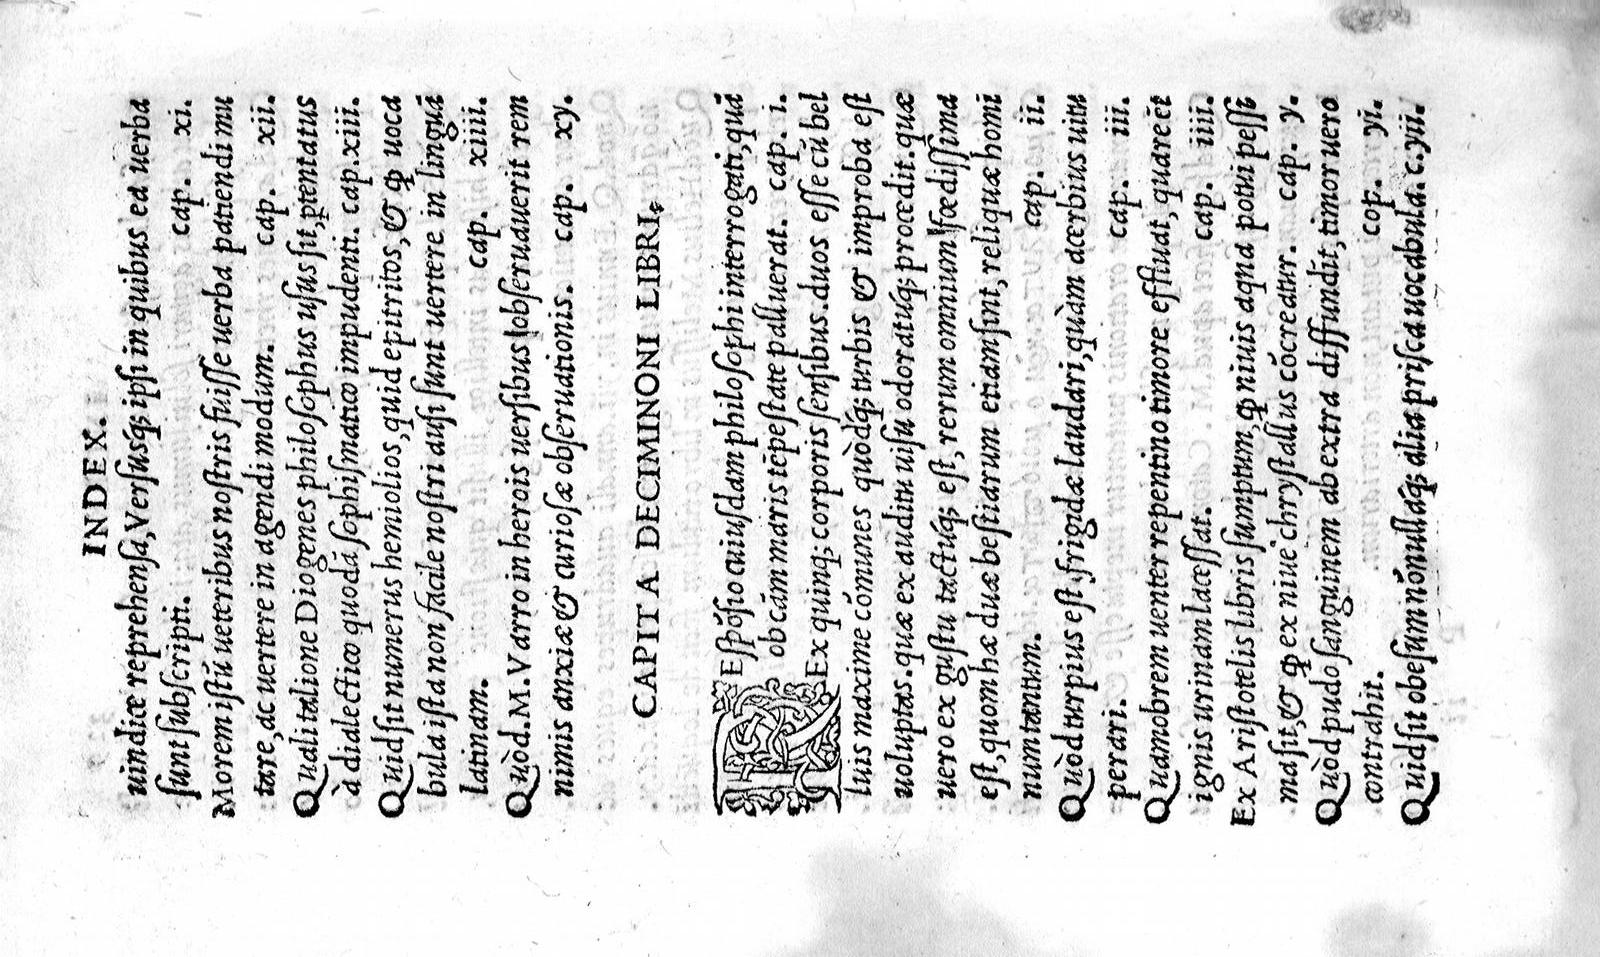 INDEX.
uindice reprehensa, Versusq; ipsi in quibus ea uerba
sunt subscripti. cap. xi.
Morem istū ueteribus nostris fuisse uerba patiendi mu
tare, ac uertere in agendi modum. cap. xii.
Quali talione Diogenes philosophus usus sit, ꝑtentatus
à dialectico quodā sophismatico impudenti. cap. xiii.
Quid sit numerus hemiolios, quid epitritos, & ꝙ uoca
bula ista non facile nostri ausi sunt uertere in linguā
latinam. cap. xiiii.
Quòd. M. Varro in herois uersibus obseruauerit rem
nimis anxiæ & curiosæ obseruationis. cap. xy.
CAPITA DECIMNONI LIBRI.
REspōsio cuiusdam philosophi interrogati, quā
ob cām maris tēpestate palluerat. cap. i.
Ex quinq; corporis sensibus. duos esse cū bel
luis maxime cōmunes quòdq; turbis & improba est
uoluptas. quæ ex auditu uisu odoratúq; procedit. quæ
uero ex gustu tactúq; est, rerum omnium fœdissima
est, quom hæ duæ bestiarum etiam sint, reliquæ homi
num tantum. cap. ii.
Quòd turpius est, frigidæ laudari, quàm acerbius uitu
perari. cap. iii.
Quamobrem uenter repentino timore effluat, quare ēt
ignis urinam lacessat. cap. iiii.
Ex Aristotelis libris sumptum, ꝙ niuis aqua potui pessi
ma sit, & ꝙ ex niue chrystallus cōcreatur. cap. y.
Quòd pudo sanguinem ab extra diffundit, timor uero
contrahit. cop. yi.
Quid sit obesum nōnulláq; alia prisca uocabula. c. yii.